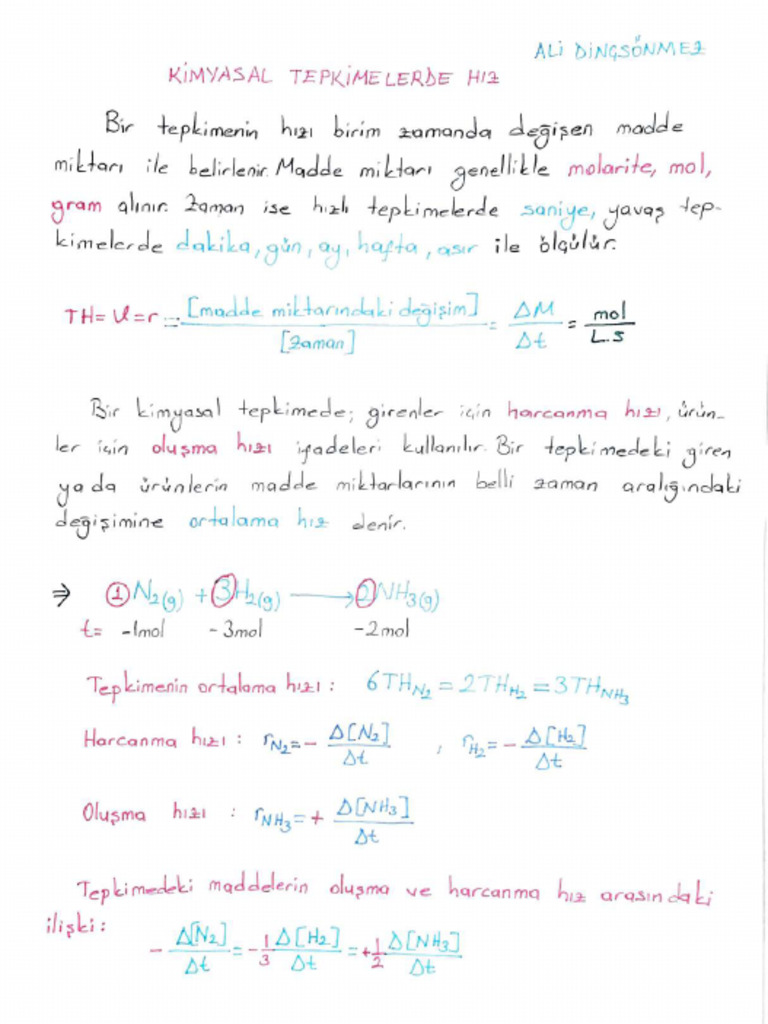 ALİ DİNÇSÖNMEZ
KİMYASAL TEPKİMELERDE HIZ
Bir tepkimenin hızı birim zamanda değişen madde
miktarı ile belirlenir. Madde miktarı genellikle molarite, mol,
gram alınır. Zaman ise hızlı tepkimelerde saniye, yavaş tep-
kimelerde dakika, gün, ay, hafta, asır ile ölçülür.
TH= ϑ =r = [madde miktarındaki değişim] / [zaman] = ΔM / Δt = mol / L.s
Bir kimyasal tepkimede; girenler için harcanma hızı, ürün-
ler için oluşma hızı ifadeleri kullanılır. Bir tepkimedeki giren
ya da ürünlerin madde miktarlarının belli zaman aralığındaki
değişimine ortalama hız denir.
⇒ ①N₂(g) + ③H₂(g) ⟶ ②NH₃(g)
t= -1mol -3mol -2mol
Tepkimenin ortalama hızı: 6TH_N₂ = 2TH_H₂ = 3TH_NH₃
Harcanma hızı: r_N₂ = - Δ[N₂] / Δt , r_H₂ = - Δ[H₂] / Δt
Oluşma hızı : r_NH₃ = + Δ[NH₃] / Δt
Tepkimedeki maddelerin oluşma ve harcanma hız arasındaki
ilişki:
- Δ[N₂] / Δt = - 1/3 Δ[H₂] / Δt = + 1/2 Δ[NH₃] / Δt